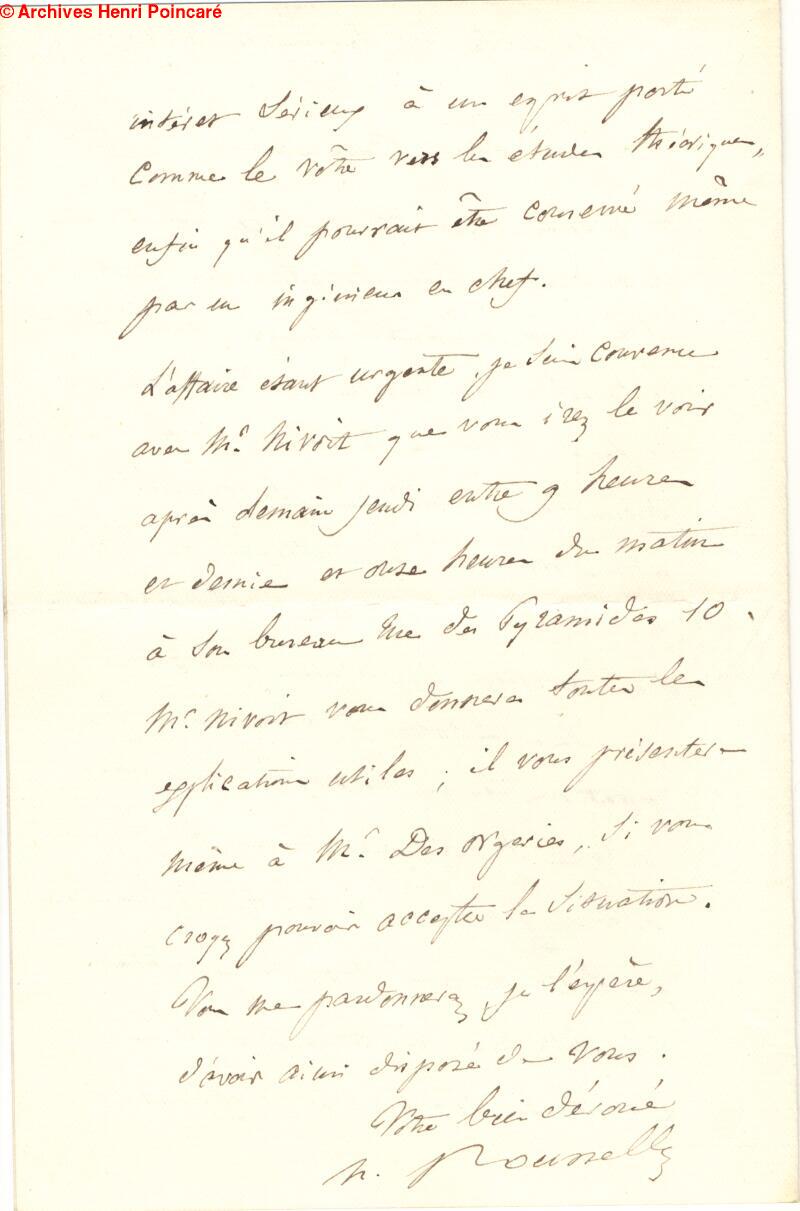 © Archives Henri Poincaré
intéret sérieux à un esprit porté
comme le vôtre vers les études théoriques,
enfin qu'il pourrait être conservé même
par un ingénieur en chef.
L'affaire étant urgente, je suis convenu
avec Mr. Nivoit que vous irez le voir
après demain jeudi entre 9 heures
et demie et onze heures du matin
à son bureau rue des Pyramides 10.
Mr. Nivoit vous donnera toutes les
explications utiles ; il vous présentera
même à Mr. Des Orgeries, si vous
croyez pouvoir accepter la situation.
Vous me pardonnerez, je l'espère,
d'avoir ainsi disposé de vous.
Votre bien dévoué